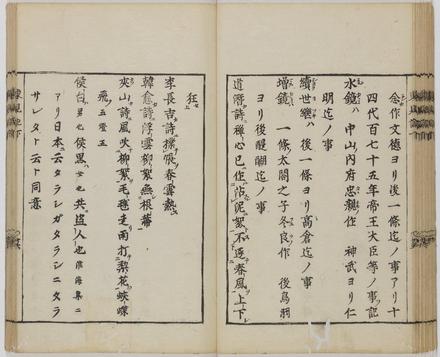 念作文徳ヨリ後一條迄ノ事アリ十
四代百七十五年帝王大臣等ノ事記
水鏡ハ 中山内府忠親作 神武ヨリ仁
明迄ノ事
續世継ハ 後一條ヨリ高倉迄ノ事
増鏡 一條太閤之子冬良作 後鳥羽
ヨリ後醍醐迄ノ事
道潜詩禅心已作沾泥絮不逐春風上下
狂
李長吉詩撲飛春雲熱
韓愈詩浮雲柳絮無根蔕
夾山詩風吹柳絮毛毬走雨打梨花蛺蝶
飛五燈
侯白男也侯黒女也共盗人也淮海集ニ
アリ日本ニ云タラシガタラシニタラ
サレタト云ト同意